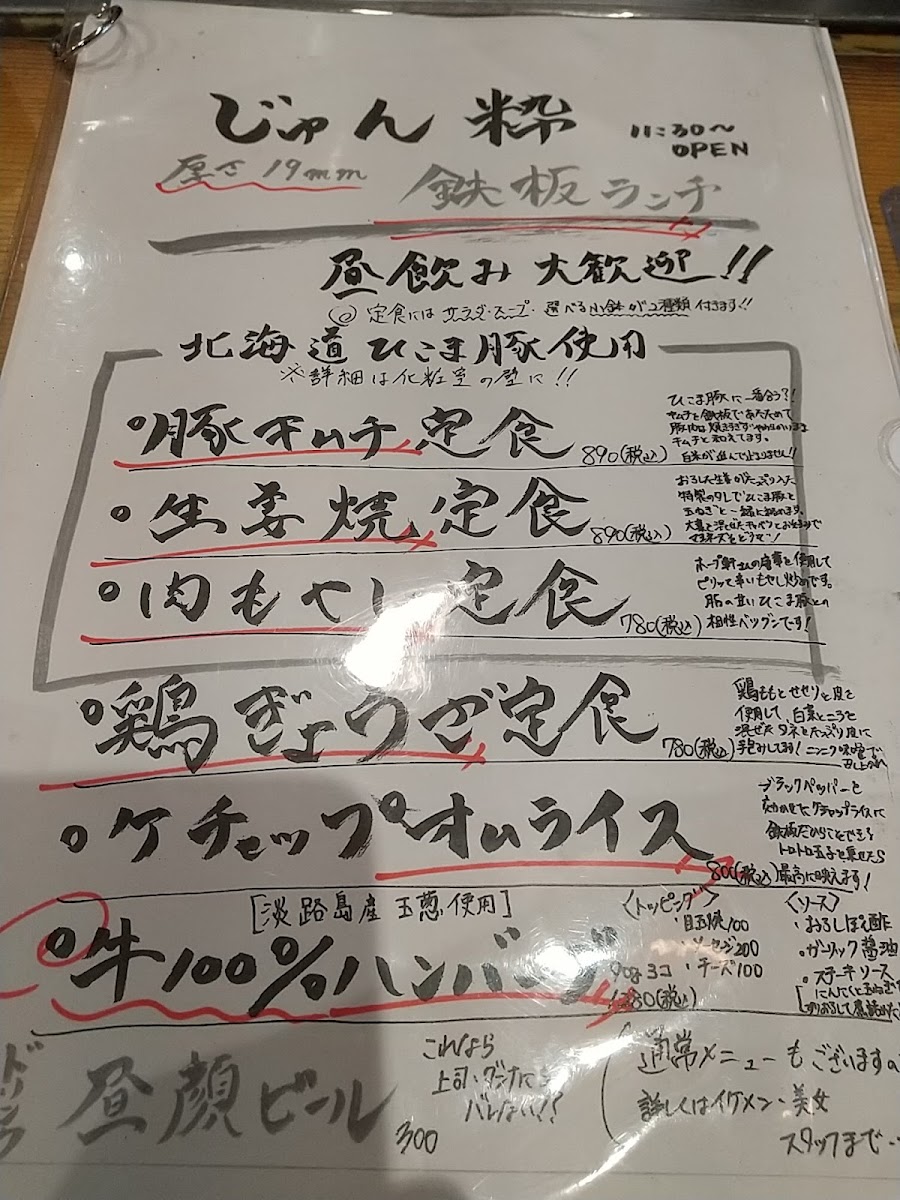 じゅん粋 11:30〜
OPEN
厚さ 19mm
鉄板ランチ
昼飲み 大歓迎!!
◎ 定食には サラダ・スープ・選べる小鉢が2種類 付きます!!
北海道 ひこま豚使用
※詳細は化粧室の壁に!!
豚キムチ定食 890(税込)
ひこま豚に一番合う?!
キムチと鉄板であたためて
キムチと和えてます。
白米が進んで止まりません!!
生姜焼定食 890(税込)
おろした生姜がたっぷり入った
特製のタレでひこま豚と
玉ねぎと一緒に
肉もやし定食 780(税込)
ホープ軒さんの
ピリッて辛いもやし炒めです。
脂の甘いひこま豚との
相性バツグンです!
鶏ぎょうざ定食 780(税込)
鶏ももとせせりと皮を
使用して、白菜とニラを
混ぜたタネをたっぷり皮に
手包みしてます!ニンニク味噌で
召し上がれ
ケチャップオムライス 800(税込)
ブラックペッパーを
効かせたケチャップライスに
鉄板だからことできる
トロトロ玉子を乗せたら
最高に映えます!
[淡路島産 玉葱使用]
牛100%ハンバーグ 90g3コ 1280(税込)
〈トッピング〉
・目玉焼100
・ソーセージ200
・チーズ100
〈ソース〉
・おろしぽん酢
・ガーリック醤油
・ステーキソース
ドリンク
昼顔ビール 300
これなら
上司・ダンナにも
バレない!?
通常メニューもございますの
詳しくはイケメン・美女
スタッフまで・・